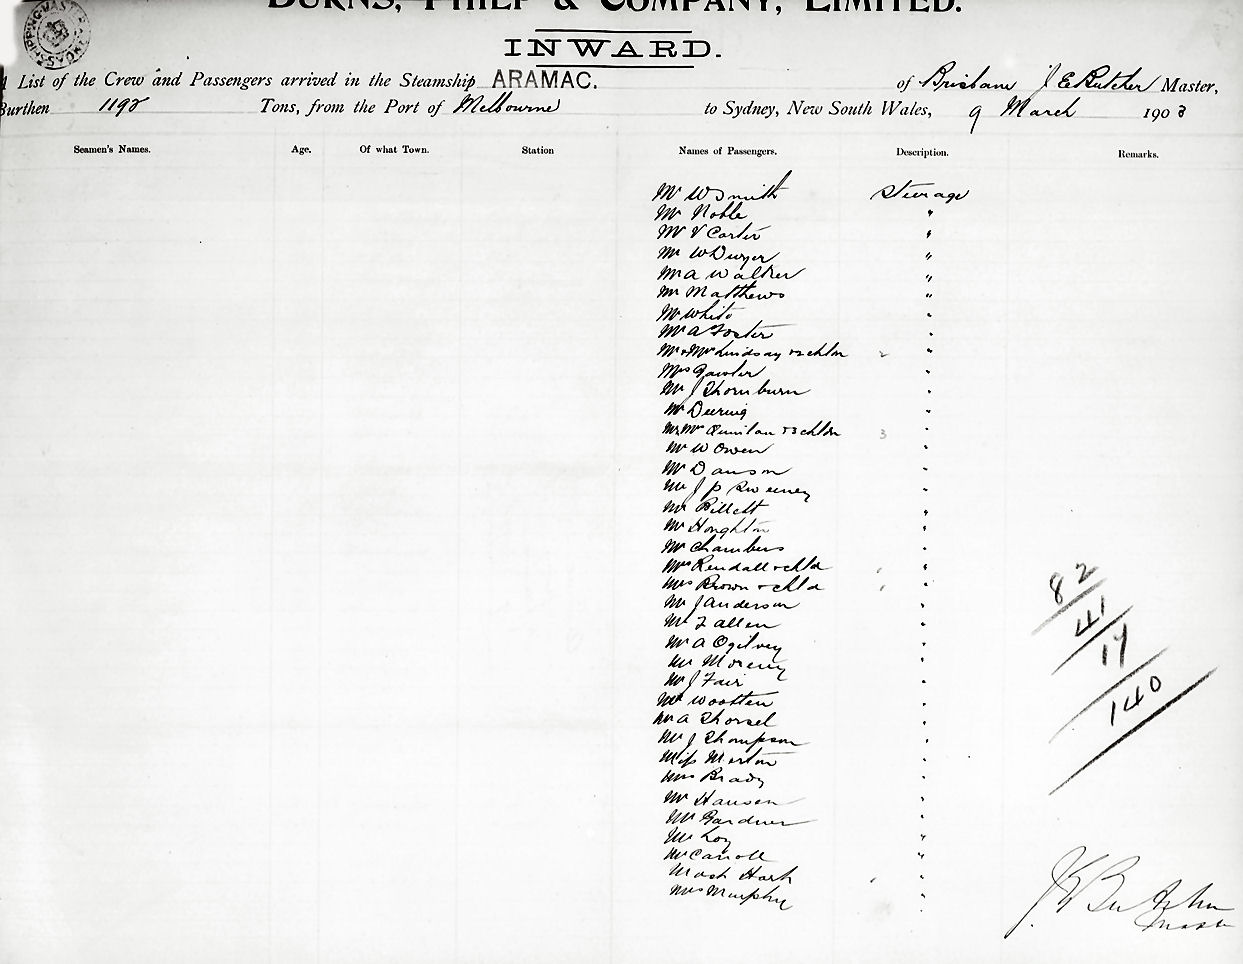 BURNS, PHILP & COMPANY, LIMITED.
INWARD.
A List of the Crew and Passengers arrived in the Steamship ARAMAC. of Brisbane J E Butcher Master,
Burthen 1192 Tons, from the Port of Melbourne to Sydney, New South Wales, 9 March 1903
Seamen's Names. Age. Of what Town. Station Names of Passengers. Description. Remarks.
Mr W Smith Steerage
Mr Noble "
Mr V Carter "
Mr W Dwyer "
Mr A Walker "
Mr Matthews "
Mr White "
Mr A Foster "
Mr & Mrs Lindsay & 2 chldn 2 "
Mrs Gawler "
Mr J Thornburn "
Mr Deering "
Mr & Mrs Quinlan & 3 chldn 3 "
Mr W Owen "
Mr Dawson "
Mr J P Sweeney "
Mr Billett "
Mr Houghton "
Mr Chambers "
Mrs Kendall & chld "
Mrs Brown & chld "
Mr J Anderson "
Mr F Allen "
Mr A Ogilvey "
Mr "
Mr J Fair "
Mr Wootten "
Mr A "
Mr J Thompson "
Miss Merton "
Mrs Brady "
Mr Hansen "
Mr Gardner "
Mr "
Mr Carroll "
Mast "
Mrs Murphy "
82
41
17
140
J E Butcher
Master